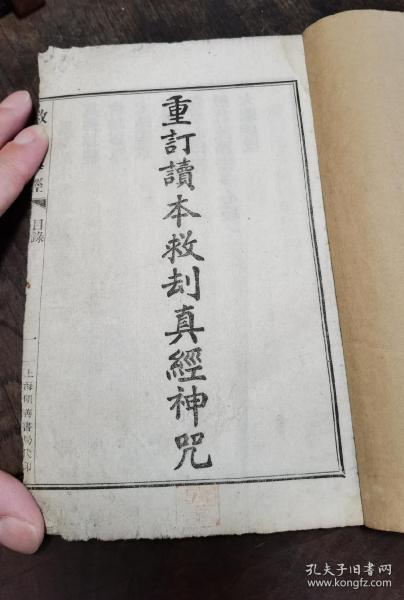 重訂讀本救刦真經神咒
救
經
目錄
一
上海明善書局代印
孔夫子旧书网
www.kongfz.com